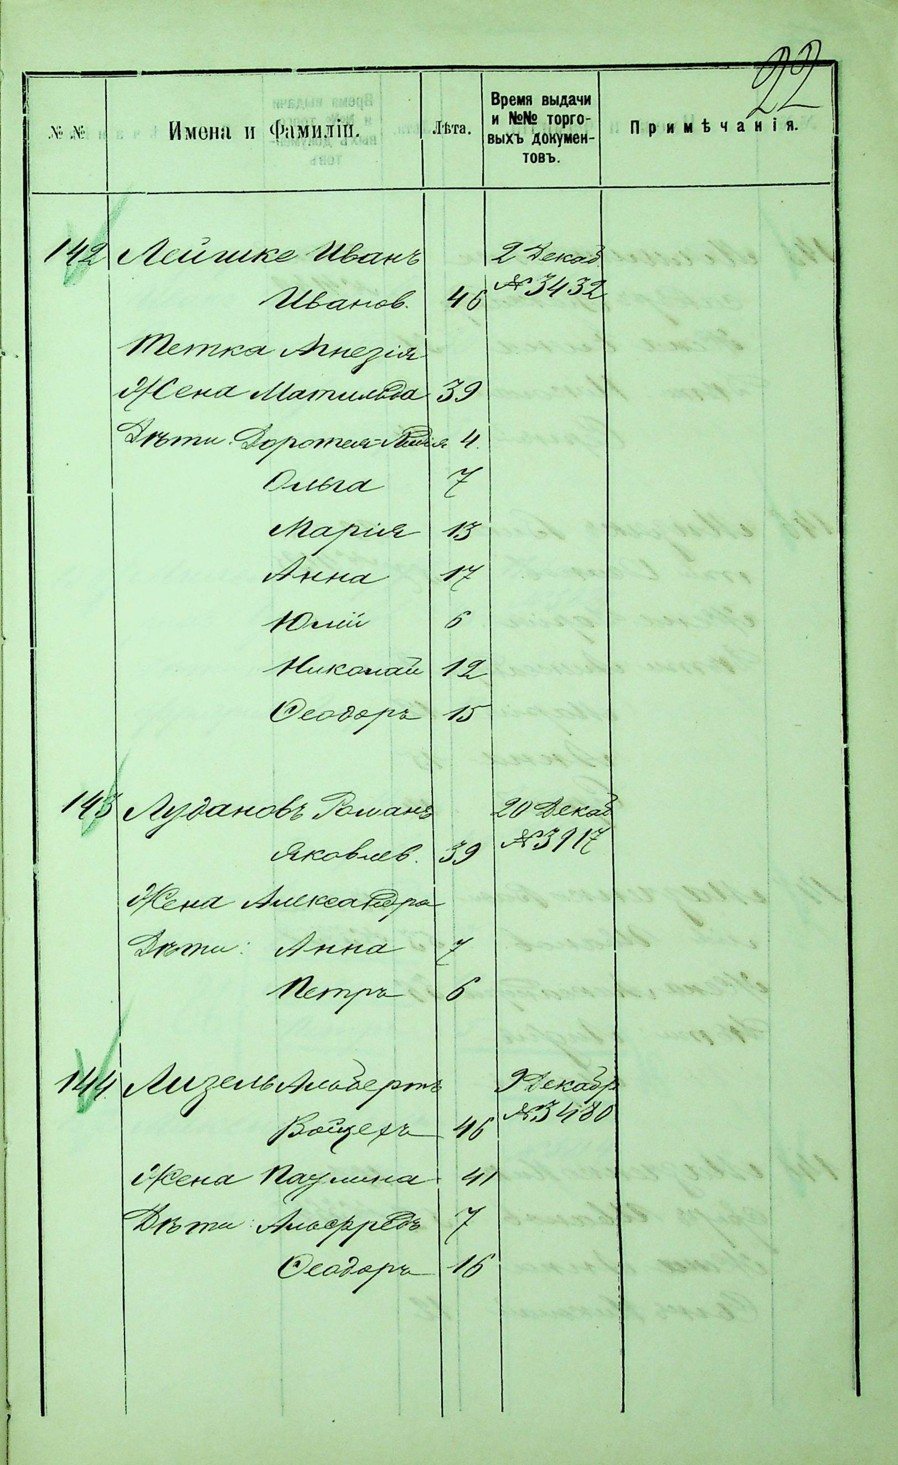 22
№ №
Имена и Фамиліи.
Лѣта.
Время выдачи и №№ торго-выхъ докумен-товъ.
Примѣчанія.
142 Лейшке Иванъ 2 Декаб
Иванов. 46 №3432
Тетка Агнезія
Жена Матильда 39
Дѣти: Доротея-Лидія 4.
Ольга 7
Марія 13
Анна 17
Юлій 6
Николай 12
Ѳеодоръ 15
143 Лудановъ Романъ 20 Декаб
Яковлев. 39 №3917
Жена Александра
Дѣти: Анна 7
Петръ 6
144 Лизель Альбертъ 9 Декабр
Войцехъ 46 №3480
Жена Паулина 41
Дѣти: Альфредъ 7
Ѳеодоръ 16